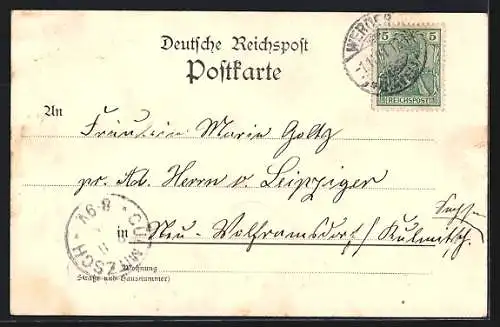 Deutsche Reichspost
Postkarte
5 5
REICHSPOST
WERDER
An
Fräulein Marie Goltz
pr. Ad. Herrn v. Leipziger
in Neu-Wolframsdorf / Kulmitzsch
CULMITZSCH
8-9V
Wohnung
(Straße und Hausnummer)